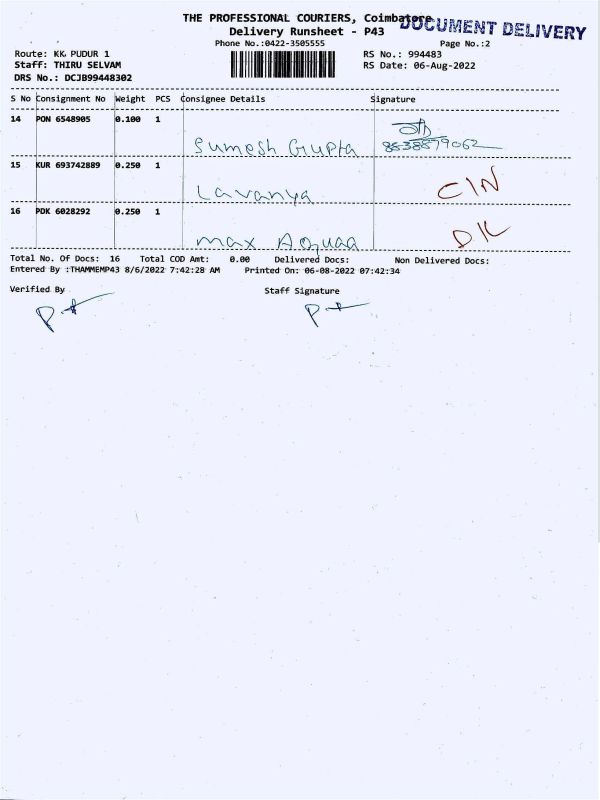 THE PROFESSIONAL COURIERS, Coimbatore
DOCUMENT DELIVERY
Delivery Runsheet - P43
Phone No.:0422-3505555
Page No.:2
Route: KK PUDUR 1
RS No.: 994483
Staff: THIRU SELVAM
RS Date: 06-Aug-2022
DRS No.: DCJB99448302
S No Consignment No Weight PCS Consignee Details Signature
14 PON 6548905 0.100 1
Sumesh Gupta
15 KUR 693742889 0.250 1
Lavanya C/N
16 PDK 6028292 0.250 1
max Aquaa D/L
Total No. Of Docs: 16 Total COD Amt: 0.00 Delivered Docs: Non Delivered Docs:
Entered By :THAMMEMP43 8/6/2022 7:42:28 AM Printed On: 06-08-2022 07:42:34
Verified By Staff Signature